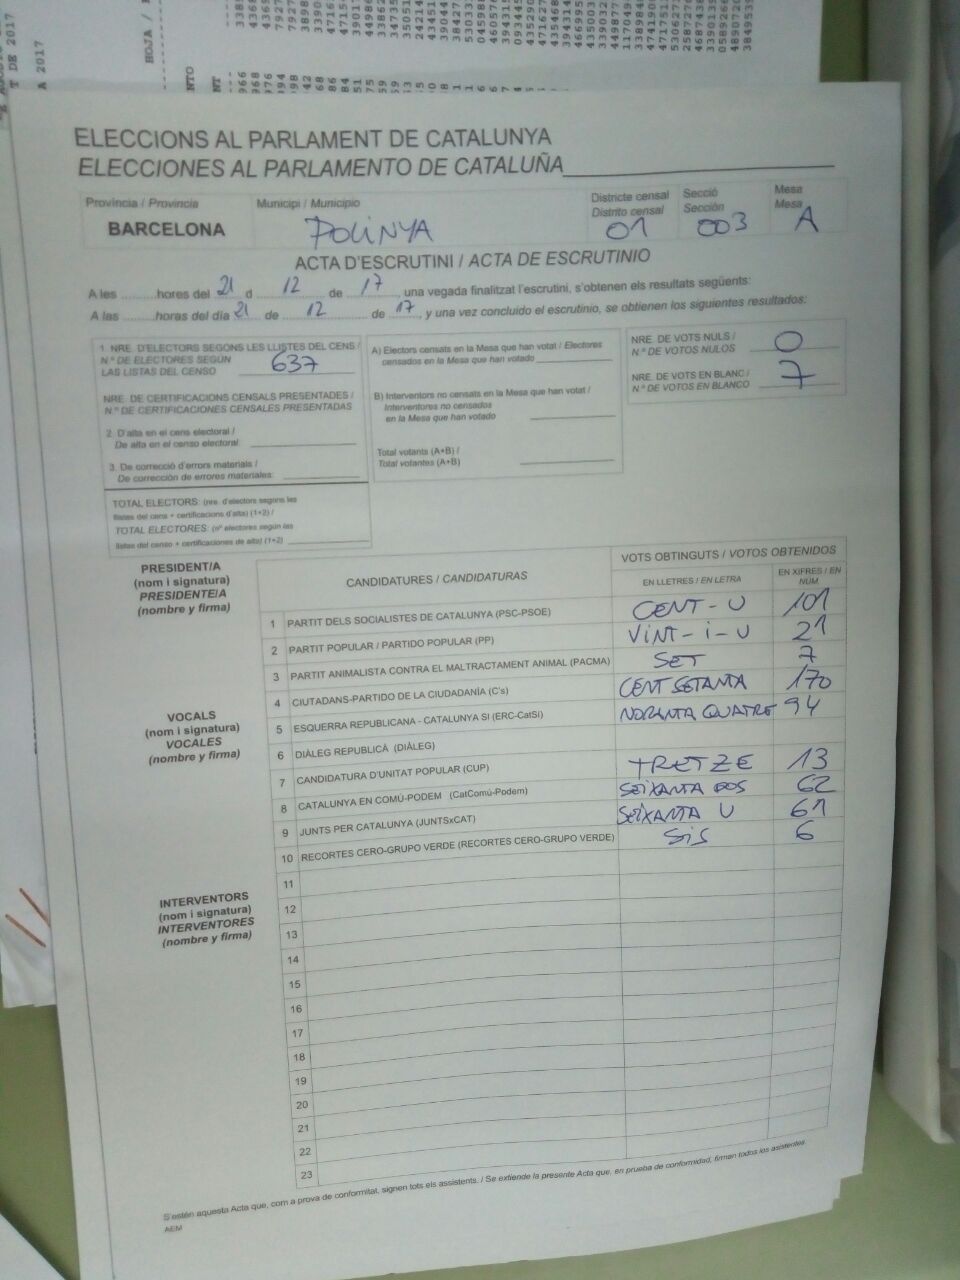 ELECCIONS AL PARLAMENT DE CATALUNYA
ELECCIONES AL PARLAMENTO DE CATALUÑA
Província / Provincia
BARCELONA
Municipi / Municipio
POLINYA
Districte censal
Distrito censal
01
Secció
Sección
003
Mesa
Mesa
A
ACTA D'ESCRUTINI / ACTA DE ESCRUTINIO
A les ..........hores del 21 d 12 de 17 una vegada finalitzat l'escrutini, s'obtenen els resultats següents:
A las ..........horas del día 21 de 12 de 17, y una vez concluido el escrutinio, se obtienen los siguientes resultados:
1. NRE. D'ELECTORS SEGONS LES LLISTES DEL CENS /
N.º DE ELECTORES SEGÚN
LAS LISTAS DEL CENSO 637
NRE. DE CERTIFICACIONS CENSALS PRESENTADES /
N.º DE CERTIFICACIONES CENSALES PRESENTADAS
2. D'alta en el cens electoral /
De alta en el censo electoral:
3. De correcció d'errors materials /
De corrección de errores materiales:
TOTAL ELECTORS: (nre. d'electors segons les
llistes del cens + certificacions d'alta) (1+2) /
TOTAL ELECTORES: (nº electores según las
listas del censo + certificaciones de alta) (1+2)
A) Electors censats en la Mesa que han votat / Electores
censados en la Mesa que han votado
B) Interventors no censats en la Mesa que han votat /
Interventores no censados
en la Mesa que han votado
Total votants (A+B) /
Total votantes (A+B)
NRE. DE VOTS NULS /
N.º DE VOTOS NULOS 0
NRE. DE VOTS EN BLANC /
N.º DE VOTOS EN BLANCO 7
PRESIDENT/A
(nom i signatura)
PRESIDENTE/A
(nombre y firma)
VOCALS
(nom i signatura)
VOCALES
(nombre y firma)
INTERVENTORS
(nom i signatura)
INTERVENTORES
(nombre y firma)
CANDIDATURES / CANDIDATURAS
VOTS OBTINGUTS / VOTOS OBTENIDOS
EN LLETRES / EN LETRA
EN XIFRES / EN NUM
1 PARTIT DELS SOCIALISTES DE CATALUNYA (PSC-PSOE) CENT-U 101
2 PARTIT POPULAR / PARTIDO POPULAR (PP) VINT-i-U 21
3 PARTIT ANIMALISTA CONTRA EL MALTRACTAMENT ANIMAL (PACMA) SET 7
4 CIUTADANS-PARTIDO DE LA CIUDADANÍA (C's) CENT SETANTA 170
5 ESQUERRA REPUBLICANA - CATALUNYA SI (ERC-CatSí) NORANTA QUATRE 94
6 DIÀLEG REPUBLICÀ (DIÀLEG)
7 CANDIDATURA D'UNITAT POPULAR (CUP) TRETZE 13
8 CATALUNYA EN COMÚ-PODEM (CatComú-Podem) SEIXANTA DOS 62
9 JUNTS PER CATALUNYA (JUNTSxCAT) SEIXANTA U 61
10 RECORTES CERO-GRUPO VERDE (RECORTES CERO-GRUPO VERDE) SiS 6
11
12
13
14
15
16
17
18
19
20
21
22
23
S'estén aquesta Acta que, com a prova de conformitat, signen tots els assistents. / Se extiende la presente Acta que, en prueba de conformidad, firman todos los asistentes.
AEM